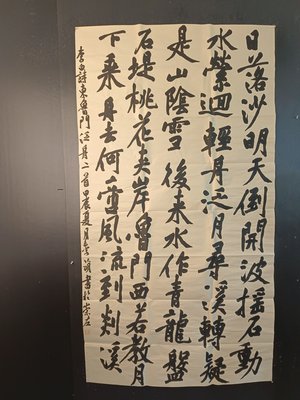 日落沙明天倒開波摇石動
水縈迴輕舟泛月尋溪轉疑
是山陰雪後来水作青龍盤
石堤桃花夹岸魯門西若教月
下乘舟去何啻風流到剡溪
李白詩東魯門泛舟二首甲辰夏月書於崇左